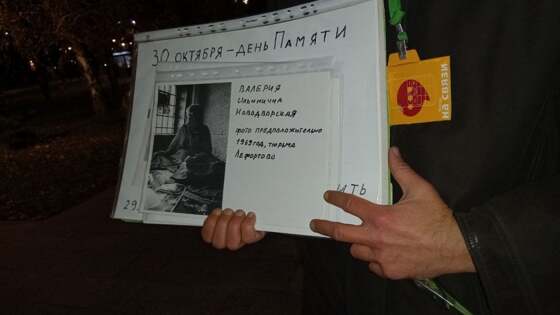 30 ОКТЯБРЯ – ДЕНЬ ПАМЯТИ
ВАЛЕРИЯ
Ильинична
Новодворская
фото предположительно
1969 год, тюрьма
Лефортово
29
ИТЬ
НА СВЯЗИ